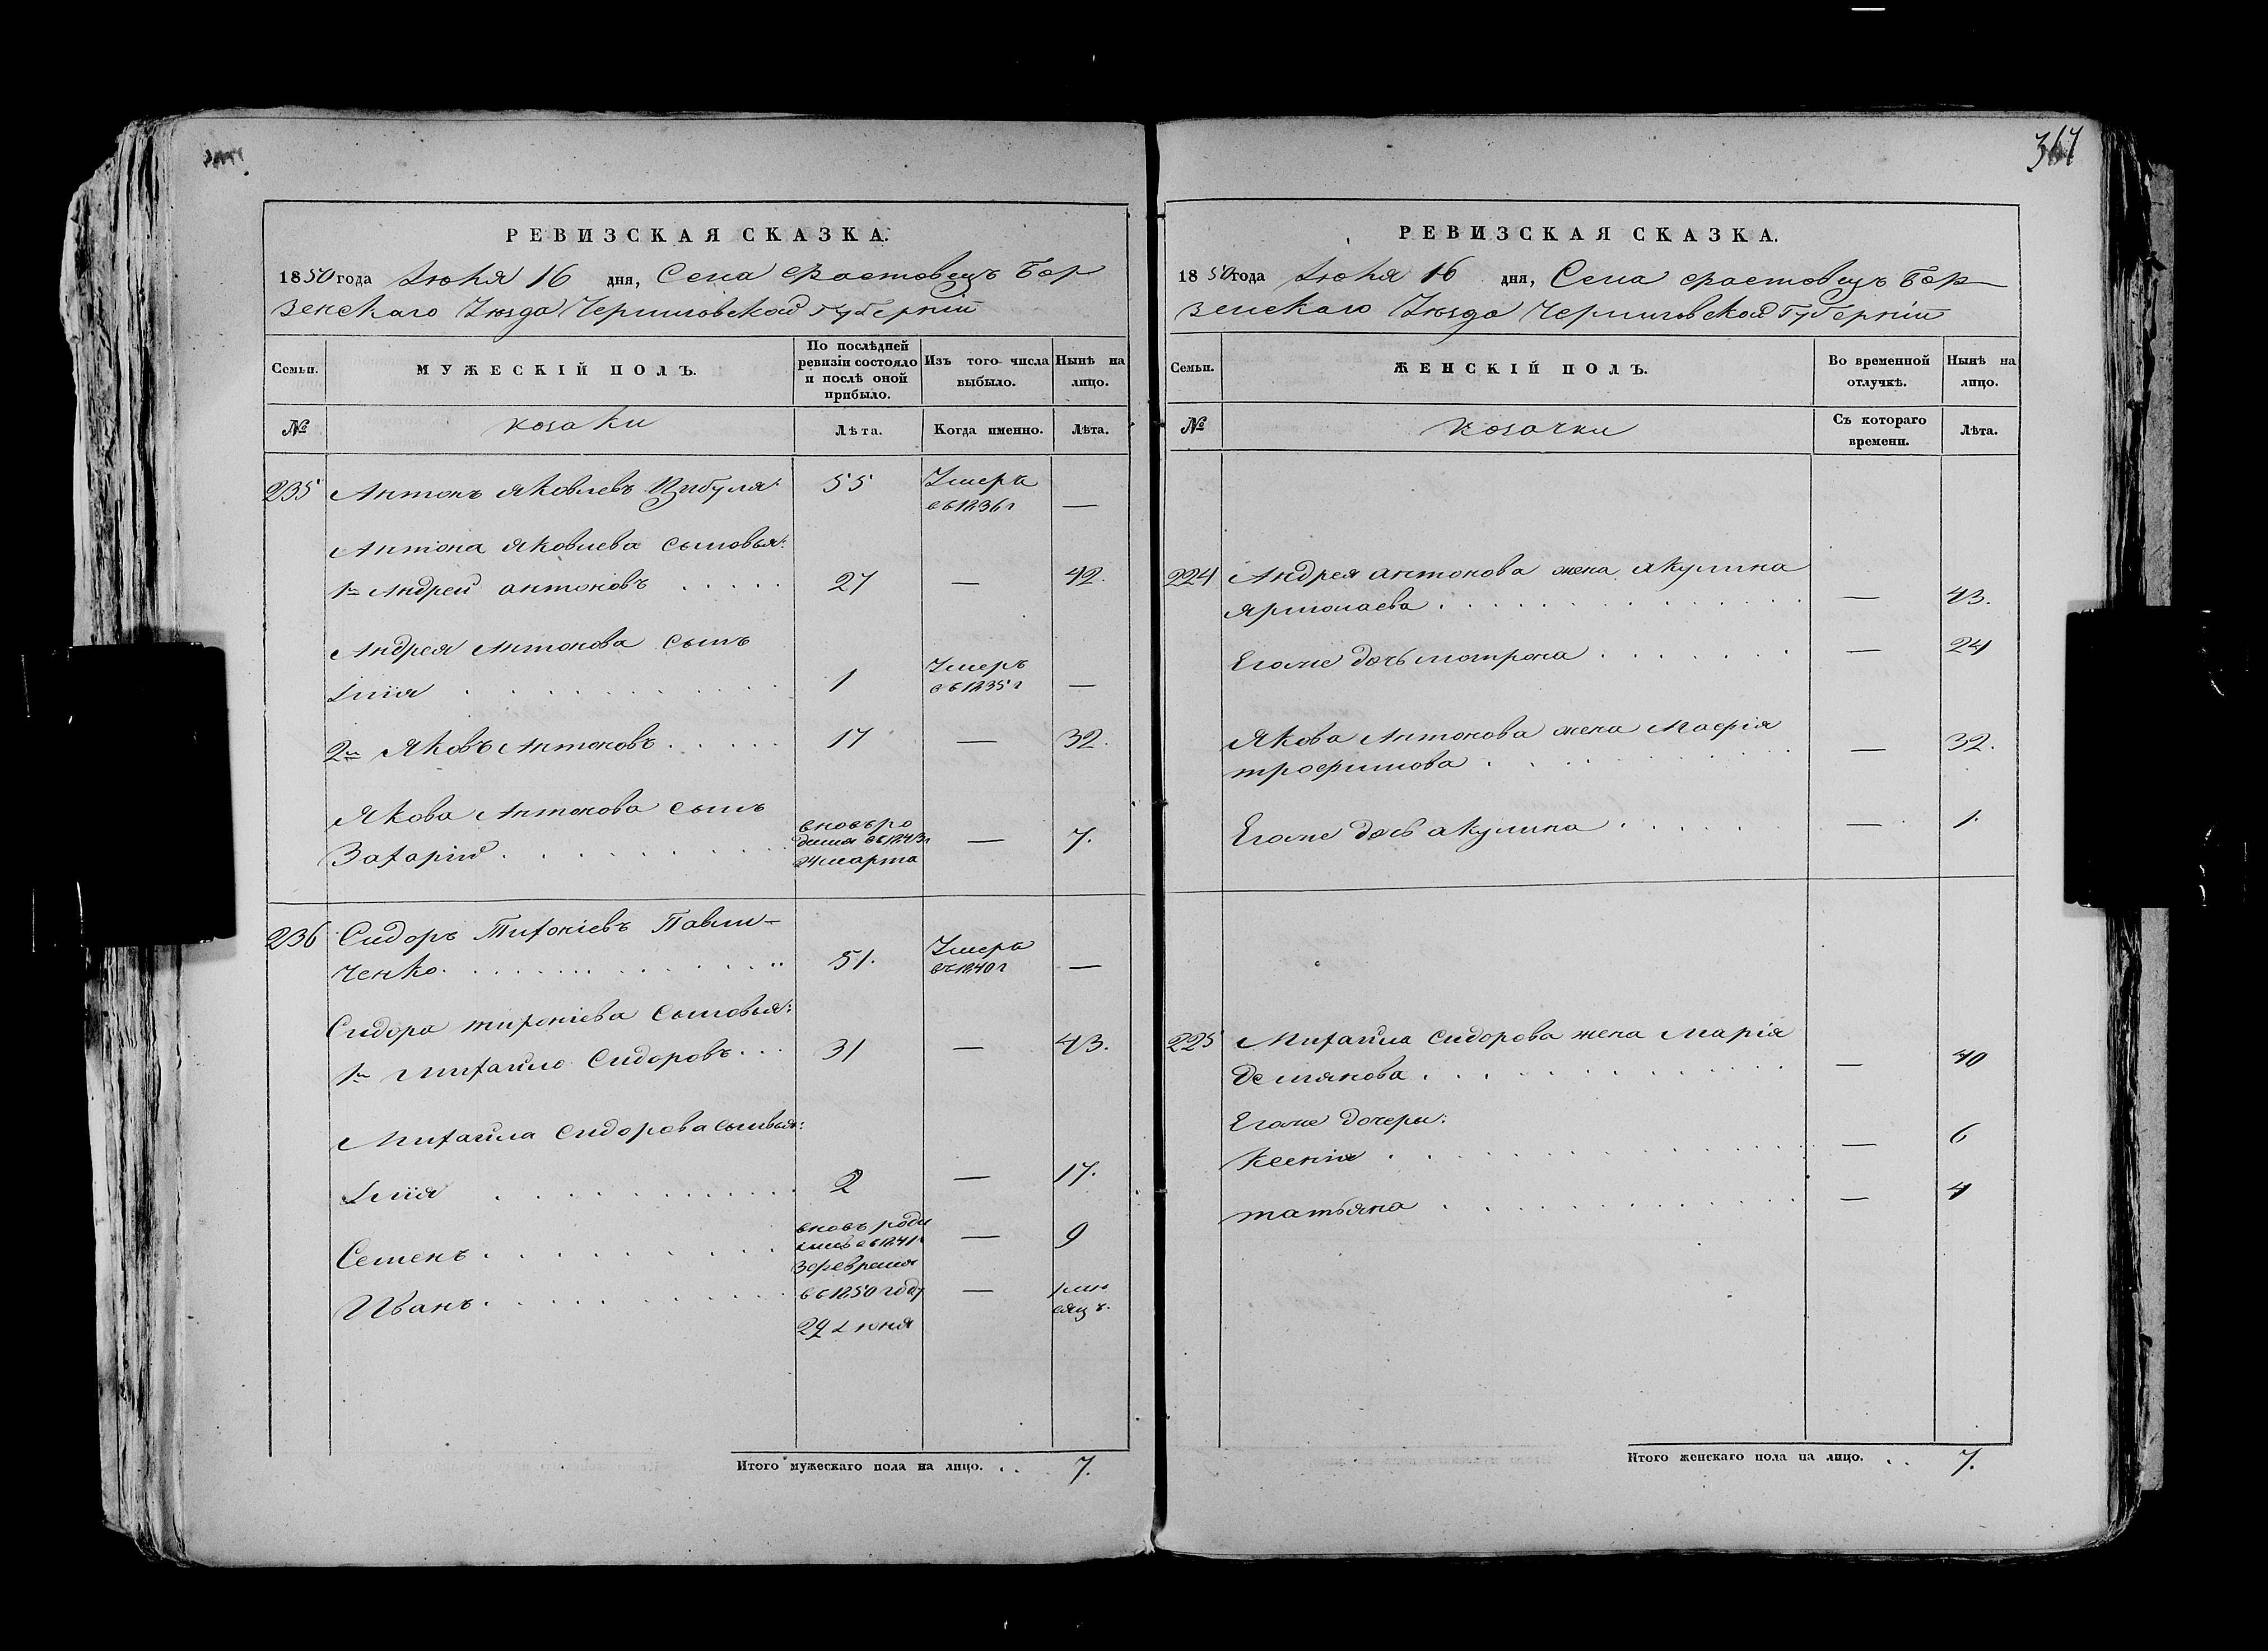 367
РЕВИЗСКАЯ СКАЗКА.
1850 года Іюня 16 дня, Села Фастовецъ Бор
зенскаго Уѣзда Черниговской Губерніи
Семьи.
МУЖЕСКІЙ ПОЛЪ.
По послѣдней
ревизіи состояло
и послѣ оной
прибыло.
Изъ того числа
выбыло.
Нынѣ на
лицо.
№
козаки
Лѣта.
Когда именно.
Лѣта.
235 Антонъ Яковлевъ Цибуля 55 Умеръ
въ 1836 г —
Антона Яковлева сыновья:
1й Андрей Антоновъ . . . . . 27 — 42.
Андрея Антонова сынъ
Ілія . . . . . . . . . . . . 1 Умеръ
въ 1835 г —
2й Яковъ Антоновъ . . . . . 17 — 32.
Якова Антонова сынъ
Захарій . . . . . . . . . . вновь ро
дился въ 1843 г
24 марта — 7.
236 Сидоръ Тихоніевъ Павли-
ченко . . . . . . . . . . . . 51. Умеръ
въ 1840 г —
Сидора Тихоніева сыновья:
1й Михайло Сидоровъ . . . 31 — 43.
Михайла Сидорова сыновья:
Ілія . . . . . . . . . . . . 2 — 17.
Семенъ . . . . . . . . . . вновь роди
лись въ 1841 г
3 февраля — 9
Иванъ . . . . . . . . . . . въ 1850 году
29 Іюня — 1 мѣ
сяцъ.
Итого мужескаго пола на лицо. . . 7.
РЕВИЗСКАЯ СКАЗКА.
1850 года Іюня 16 дня, Села Фастовецъ Бор
зенскаго Уѣзда Черниговской Губерніи
Семьи.
ЖЕНСКІЙ ПОЛЪ.
Во временной
отлучкѣ.
Нынѣ на
лицо.
№
козачки
Съ котораго
времени.
Лѣта.
224 Андрея Антонова жена Акулина
Ярмолаева . . . . . . . . . . . . . — 43.
Егоже дочь Матрона . . . . . . . — 24
Якова Антонова жена Марія
Трофимова . . . . . . . . . . — 32.
Егоже дочь Акулина . . . . . — 1.
225 Михайла Сидорова жена Марія
Демянова . . . . . . . . . . . . . . — 40
Егоже дочери:
Ксенія . . . . . . . . . . . . . . . — 6
Татьяна . . . . . . . . . . . . . — 4
Итого женскаго пола на лицо. . . 7.